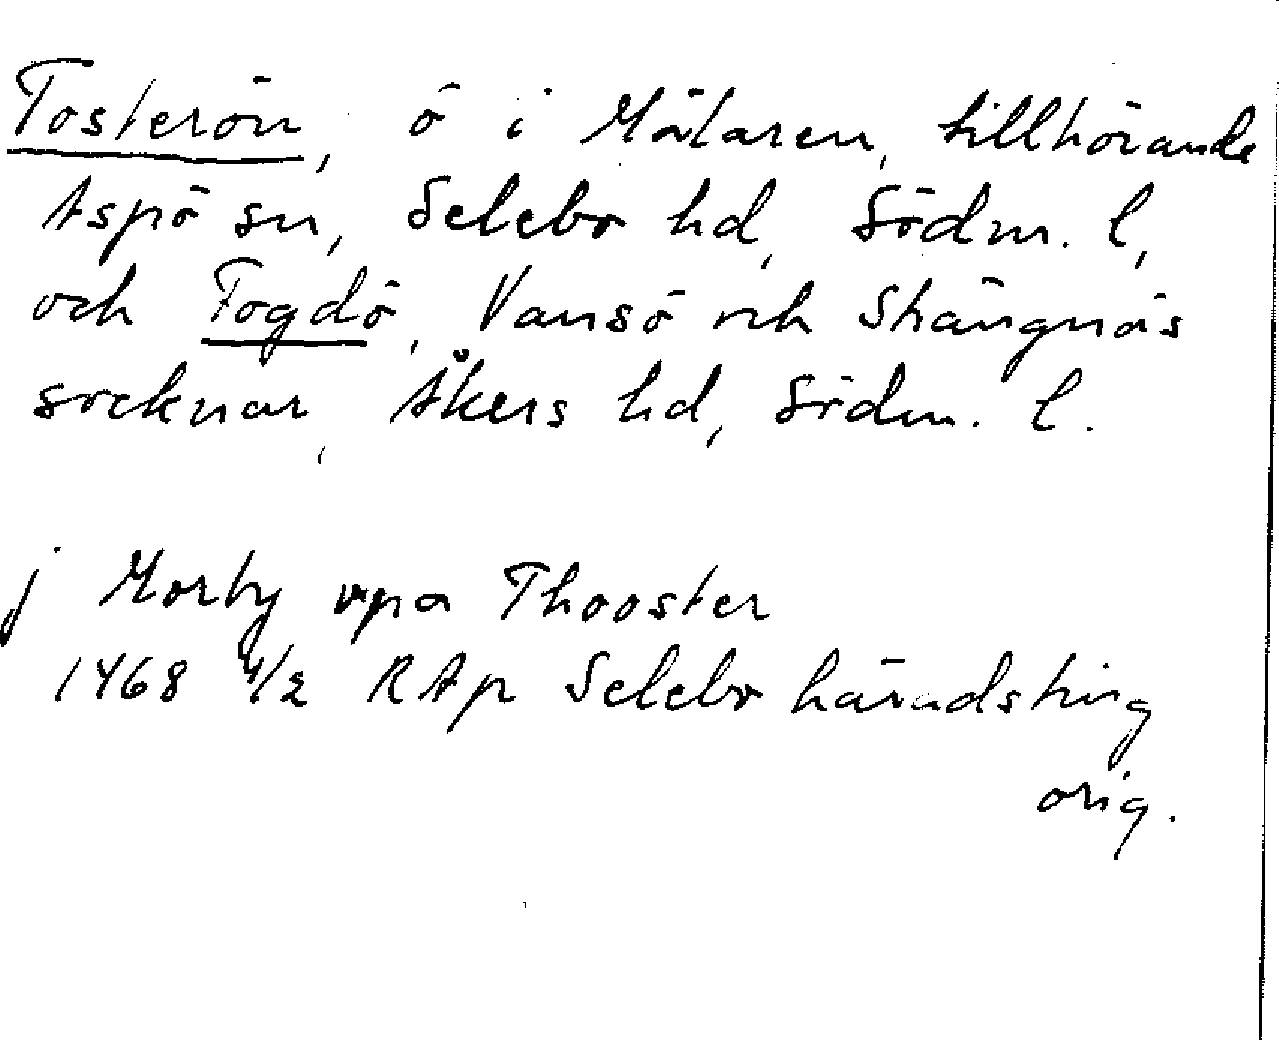 Tosterön, ö i Mälaren, tillhörande
Aspö sn, Selebo hd, Södm. l,
och Fogdö, Vansö och Strängnäs
socknar, Åkers hd, Södm. l.
j Morby vpa Thooster
1468 4/2 RAp Selebo häradsting
orig.